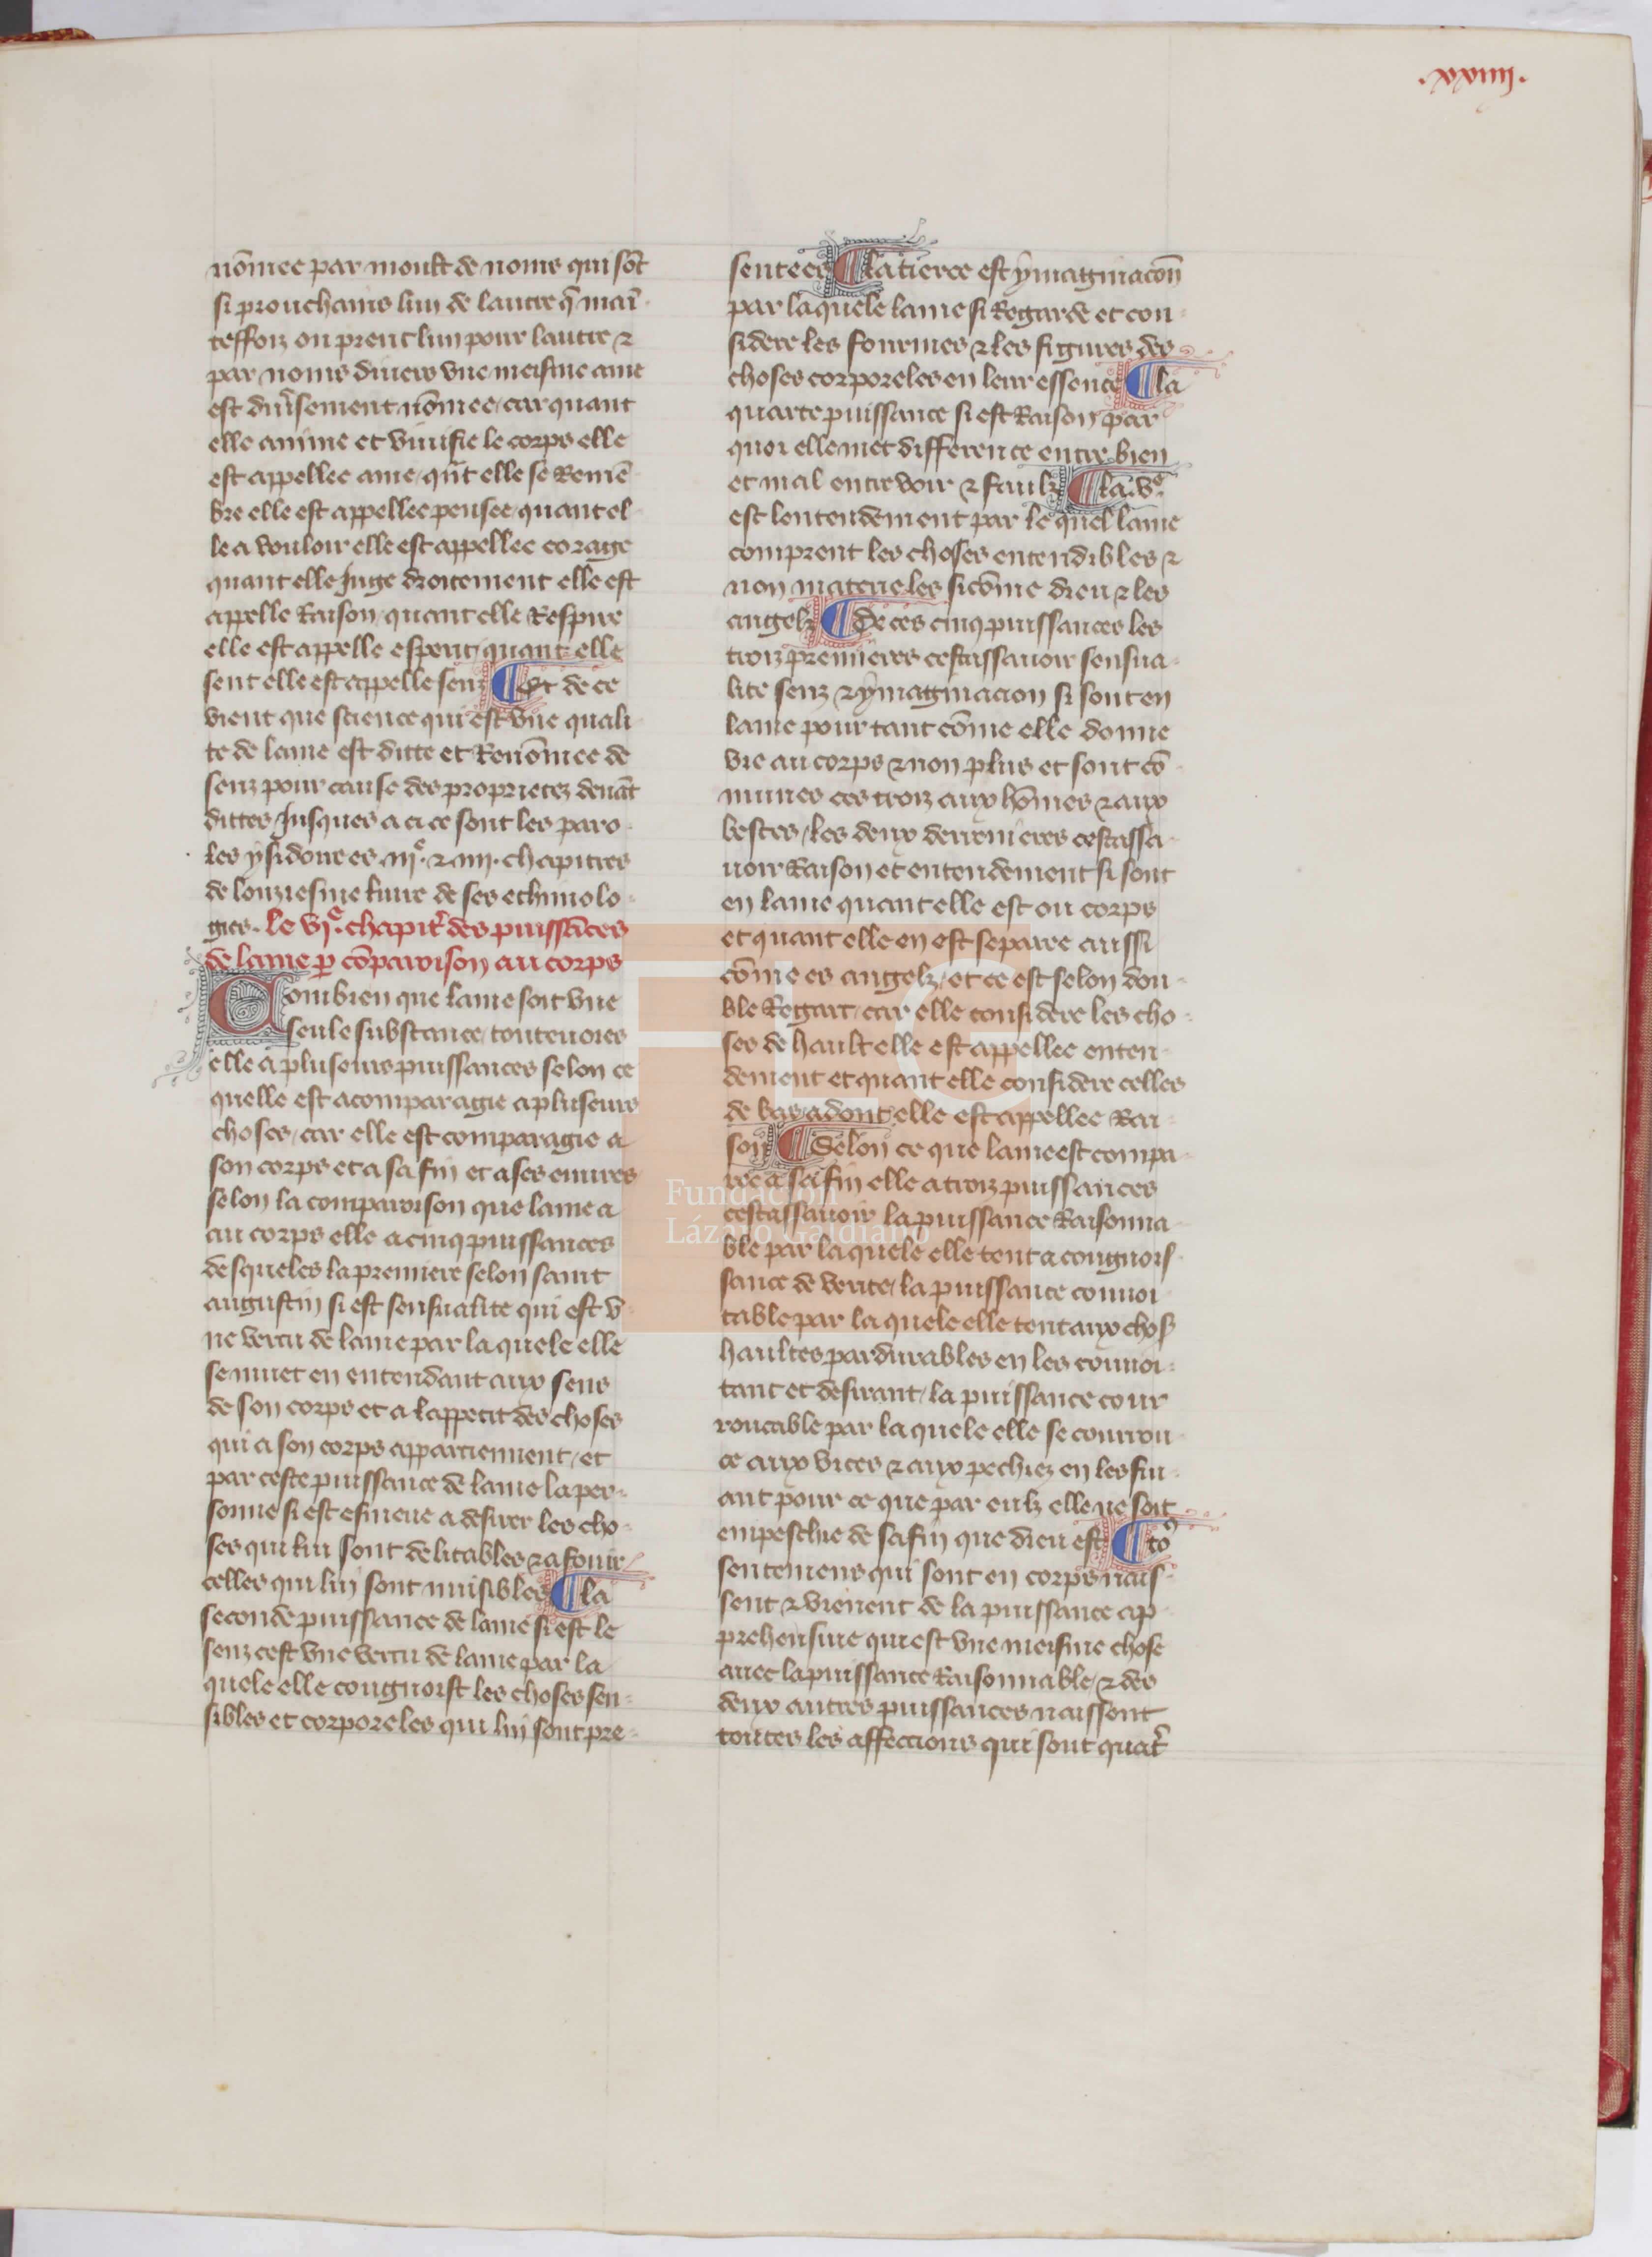 .xxxiiij.
nōmee par moult de noms qui sōt
si prouchains lun de lautre q̄ mai̅
teffoiz on prent lun pour lautre ⁊
par noms divers vne meisme ame
est diu̅sement nōmee / car quant
elle anime et viuifie le corps elle
est appellee ame / qn̄t elle se Remē
bre elle est appellee pensee / quant el
le a vouloir elle est appellee corage
quant elle Juge droitement elle est
apelle Raison / quant elle Respire
elle est appelle esperit / quant elle
sent elle est appelle senz ¶ Et de ce
vient que science qui est vne quali
te de lame est ditte et Renōmee de
senz pour cause des proprietez deuāt
dittes Jusques a ci ce sont les paro
les ysidore es .iije. ⁊ .iiij. chapitres
de lonziesme liure de ses ethimolo
gies. le vje. chapit̄ des puissāces
de lame p̱ cōparoison au corps
Combien que lame soit vne
seule substance / touteuoies
elle a pluseurs puissances selon ce
quelle est acomparagie a pluseurs
choses / car elle est comparagie a
son corps et a sa fin et a ses euures
selon la comparoison que lame a
au corps elle a cinq puissances
desqueles la premiere selon saint
augustin si est sensualite qui est v
ne vertu de lame par la quele elle
se muet en entendant aux sens
de son corps et a lappetit des choses
qui a son corps appartiennent / et
par ceste puissance de lame la per
sonne si est esmeue a desirer les cho
ses qui lui sont delitables ⁊ a fouir
celles qui lui sont nuisibles ¶ la
seconde puissance de lame si est le
senz cest vne vertu de lame par la
quele elle congnoist les choses sen
sibles et corporeles qui lui sont pre
sentees ¶ la tierce est ymaginacōn
par laquele lame si Regarde et con
sidere les fourmes ⁊ les figures des
choses corporeles en leur essence ¶ la
quarte puissance si est Raison par
quoi elle met difference entre bien
et mal entre voir ⁊ faulz ¶ la .ve.
est lentendement par le quel lame
comprent les choses entendibles ⁊
non materieles si cōme dieu ⁊ les
angelz ¶ De ces cinq puissances les
troiz premieres cestassauoir sensua
lite senz ⁊ ymaginacion si sont en
lame pour tant cōme elle donne
vie au corps ⁊ non plus et sont cō
munes ces troiz aux hōmes ⁊ aux
bestes / les deux derrenieres cestassa
uoir Raison et entendement si sont
en lame quant elle est ou corps
et quant elle en est separee aussi
cōme es angelz / et ce est selon dou
ble Regart / car elle considere les cho
ses de hault elle est appellee enten
dement et quant elle considere celles
de bas adont elle est appellee Rai
son ¶ Selon ce que lame est compa
ree a sa fin elle a troiz puissances
cestassauoir la puissance Raisonna
ble par laquele elle tent a congnois
sance de verite / la puissance conuoi
table par la quele elle tent aux chos
haultes pardurables en les conuoi
tant et desirant / la puissance cour
roucable par la quele elle se courrou
ce aux vices ⁊ aux pechiez en les fui
ant pour ce que par eulz elle ne soit
empeschie de sa fin que dieu est ¶ to9
sentemens qui sont en corps nais
sent ⁊ vienent de la puissance ap
prehensiue qui est vne meisme chose
auec la puissance Raisonnable / ⁊ des
deux autres puissances naissent
toutes les affections qui sont quat̄
Fundación
Lázaro Galdiano
FLG